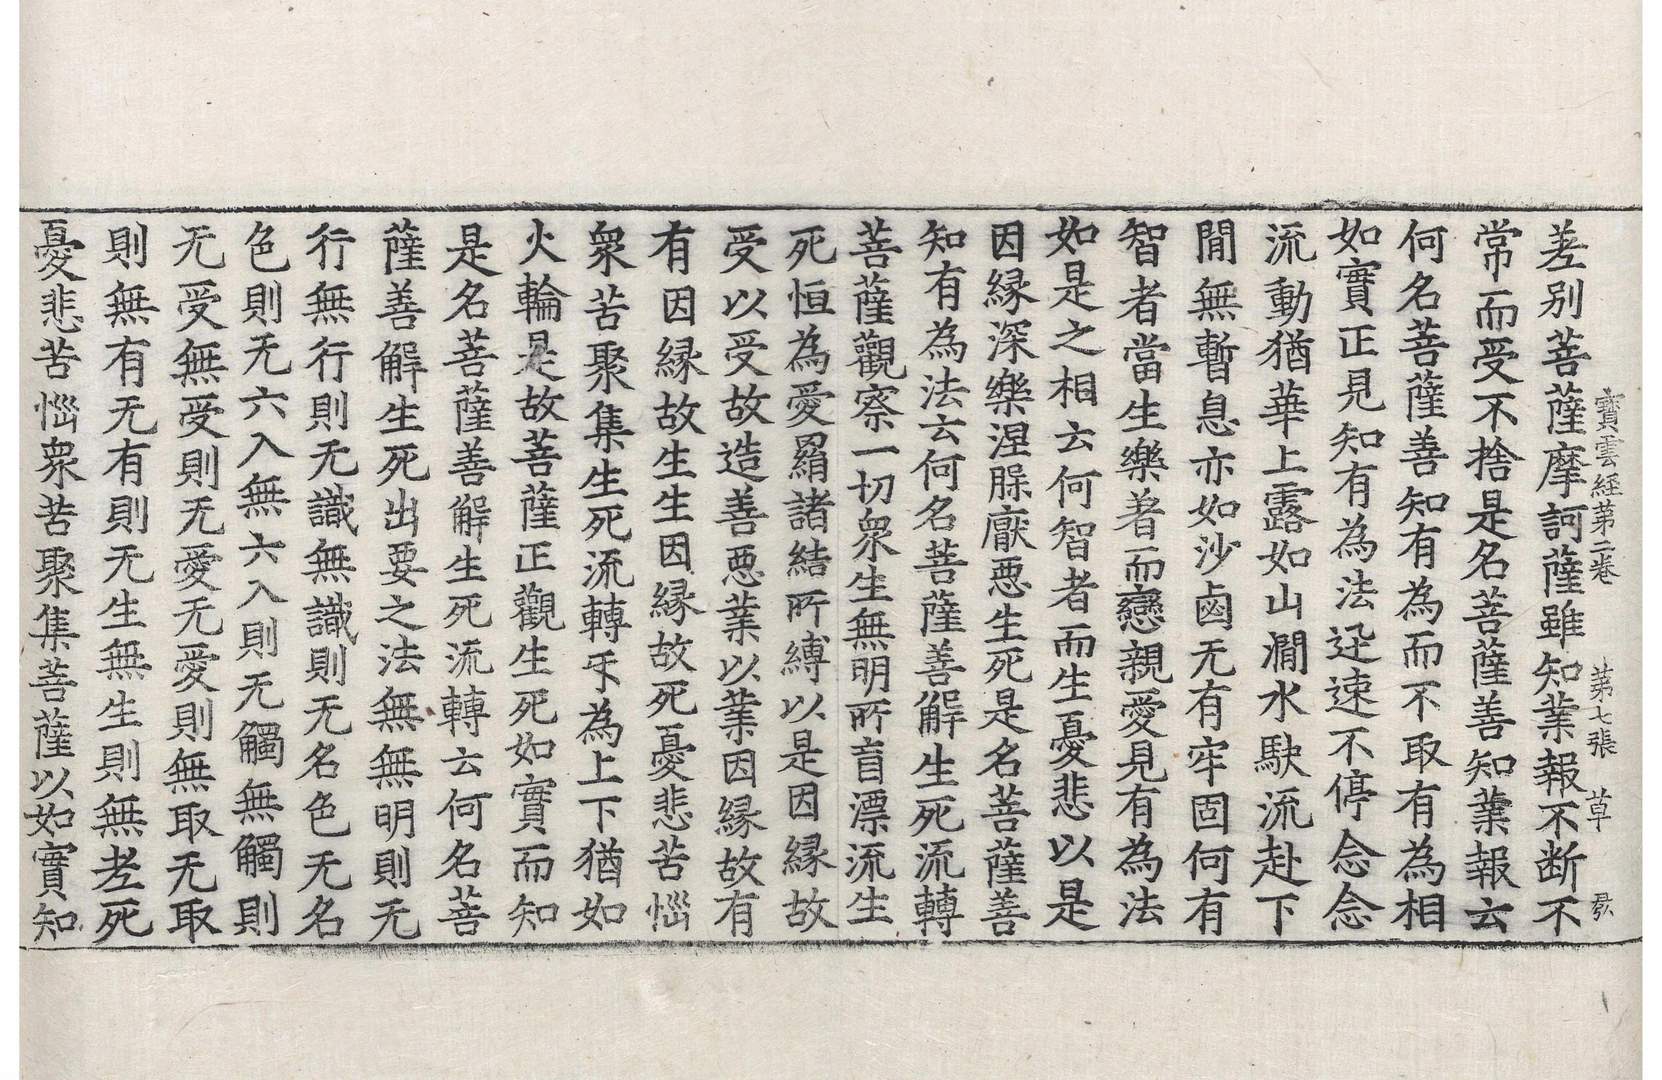 寶雲経苐二巻　苐七張　草
差別菩薩摩訶薩雖知業報不断不
常而受不捨是名菩薩善知業報云
何名菩薩善知有為而不取有為相
如實正見知有為法迅速不停念念
流動猶華上露如山澗水駃流赴下
閒無暫息亦如沙鹵无有牢固何有
智者當生樂著而戀親愛見有為法
如是之相云何智者而生憂悲以是
因縁深樂涅槃厭悪生死是名菩薩善
知有為法云何名菩薩善解生死流轉
菩薩觀察一切衆生無明所盲漂流生
死恒為愛羂諸結所縛以是因縁故
受以受故造善悪業以業因縁故有
有因縁故生生因縁故死憂悲苦惱
衆苦聚集生死流轉㸦為上下猶如
火輪是故菩薩正觀生死如實而知
是名菩薩善解生死流轉云何名菩
薩善解生死出要之法無無明則无
行無行則无識無識則无名色无名
色則无六入無六入則无觸無觸則
无受無受則无愛无愛則無取无取
則無有无有則无生無生則無老死
憂悲苦惱衆苦聚集菩薩以如實知